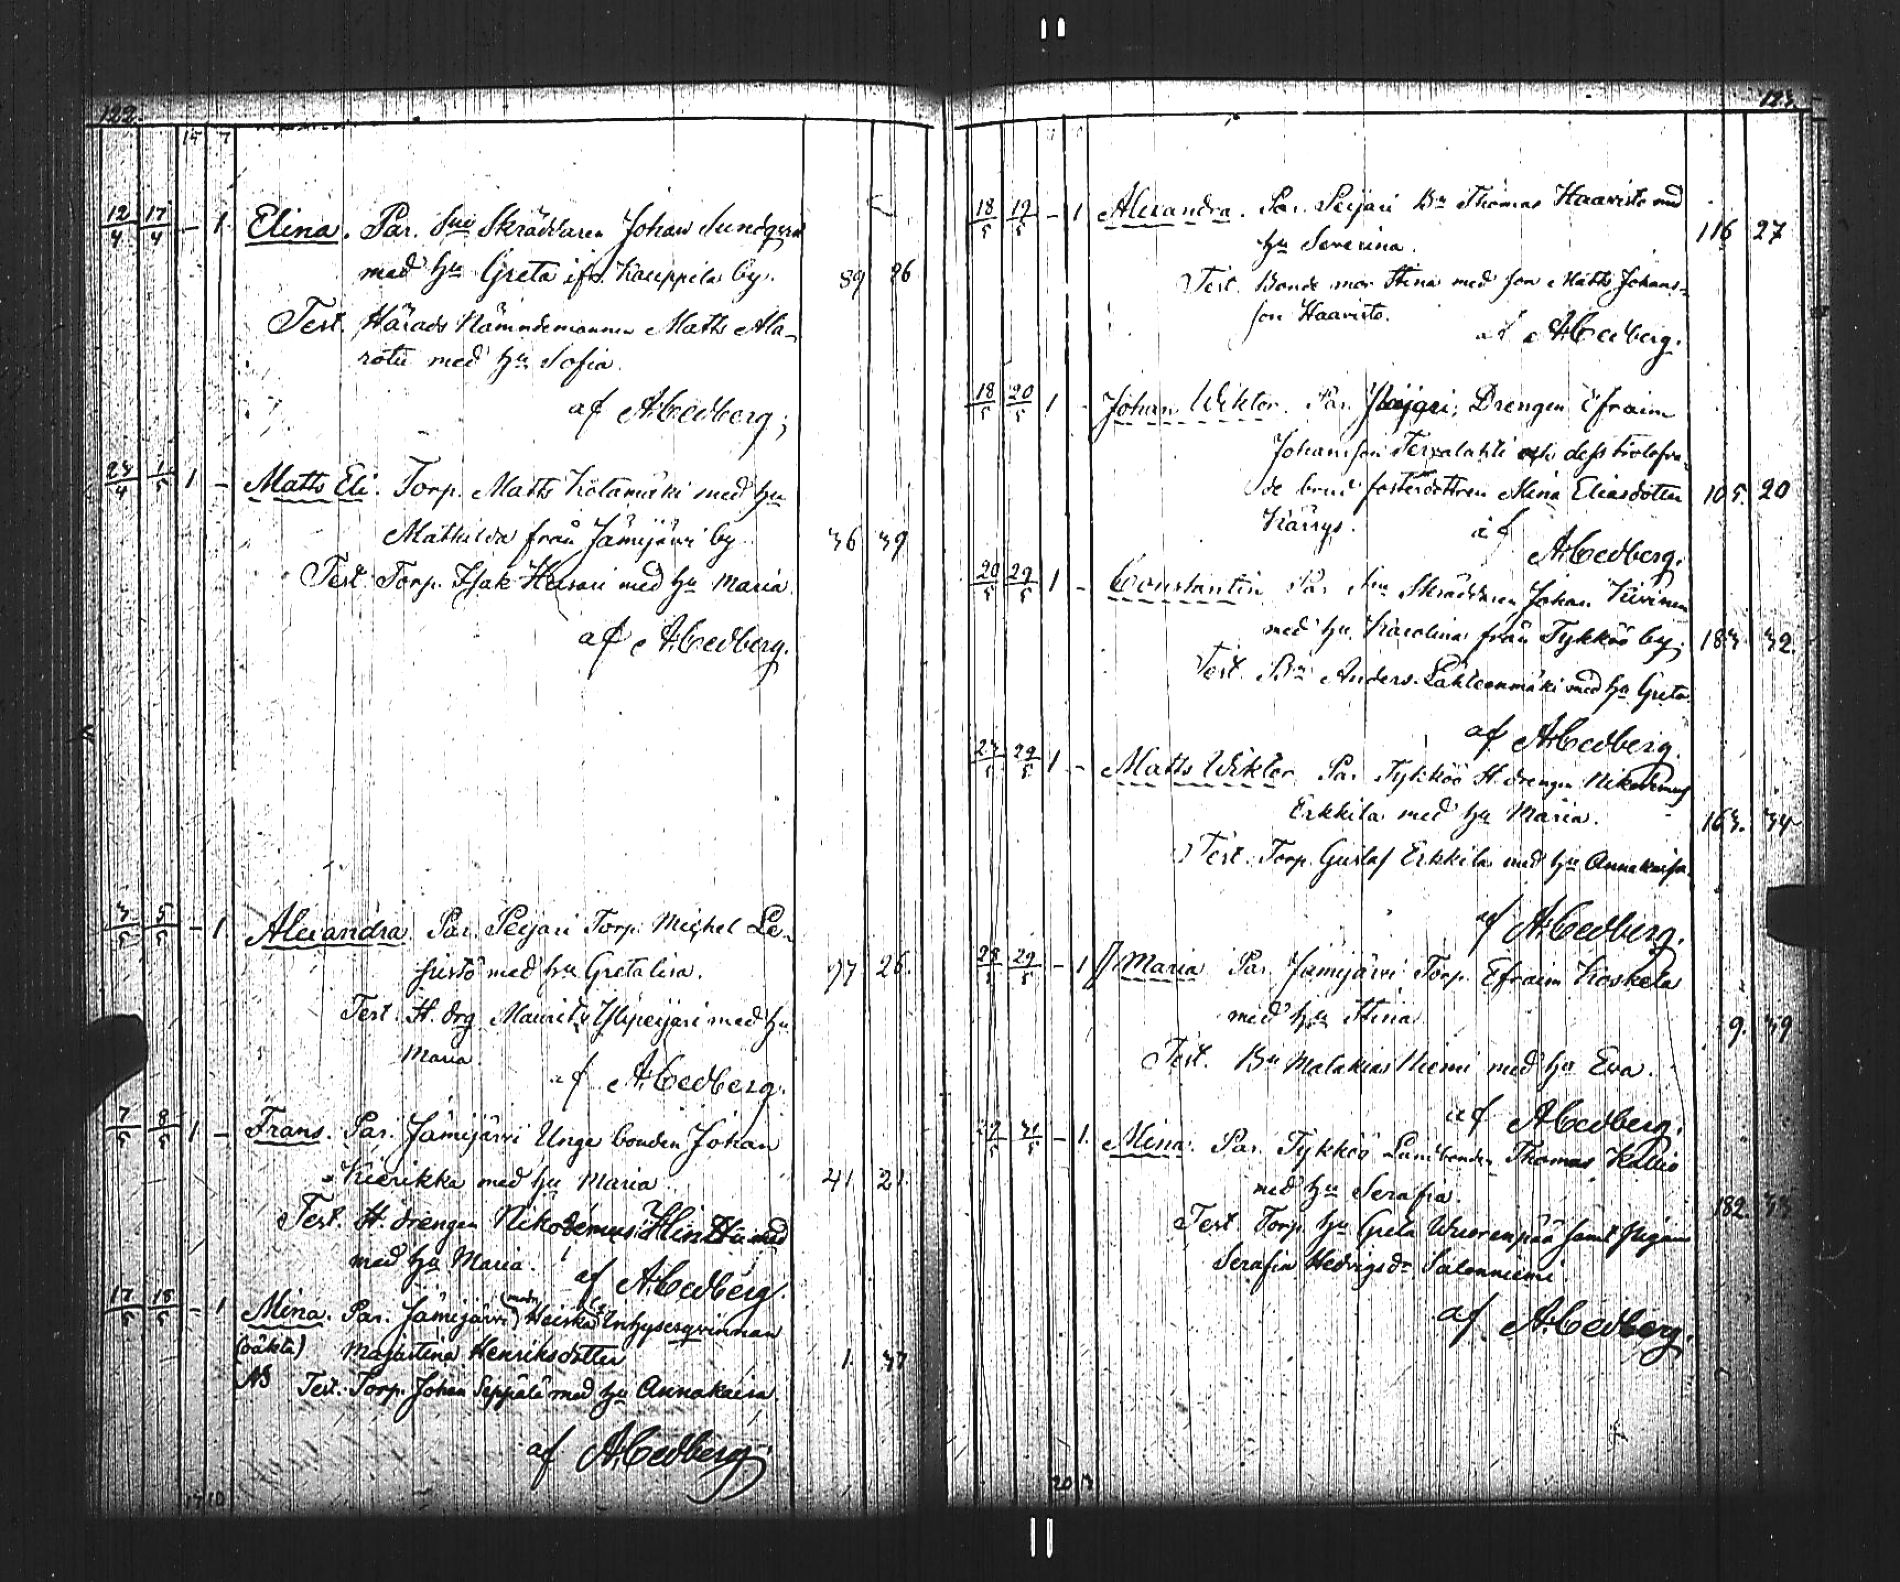 122.
15 7
12/4 17/4 - 1. Elina. Par. Snn Skräddaren Johan Sundqvist
med hu Greta ifr. Kauppila by. 89 26
Test. Härads Nämndemannen Matts Ala-
rotu med hu Sofia.
af A. Cedberg;
23/4 1/5 1 - Matts Eli. Torp. Matts Kotamäki med hu
Mathilda från Jämijärvi by 36 39
Test. Torp. Isak Heisari med hu Maria
af A. Cedberg.
3/5 5/5 - 1. Alexandra. Par. Peijari Torp. Michel Le-
pistö med hu Gretalisa. 97 26.
Test. H. drg Maurits Ylipeijari med hu
Maria.
af A. Cedberg.
7/5 8/5 1 - Frans. Par. Jämijärvi Unge bonden Johan
Kierikka med hu Maria. 41 21.
Test. H. drengen Nikodemus Hinttu med
med hu Maria.
af A. Cedberg.
17/5 18/5 - 1 Mina. Par. Jämijärvi Heiska Inhysesqvinnan
(oäkta) Majastina Henriksdotter 1. 37
NB Test. Torp. Johan Seppälä med hu Annakaisa.
af A. Cedberg.
17 10
123.
18/5 19/5 - 1 Alexandra. Par. Peijari Bn Thomas Haavisto med
hu Severina. 116 27
Test. Bonde mor Stina med son Matts Johans-
son Haavisto.
af A. Cedberg.
18/5 20/5 1 - Johan Wiktor. Par. Peijari, Drengen Efraim
Johansson Tervalahti och dess trolofva-
de brud fosterdottren Mina Eliasdotter 105. 20
Kärrys.
af A. Cedberg.
20/5 29/5 1 - Constantin Par. Snn Skräddaren Johan Kivinen
med hu Karolina från Tykköö by; 183 32.
Test. Bn Anders Lähteenmäki med hu Greta
af A. Cedberg.
23/5 29/5 1 - Matts Wiktor Par. Tykköö H. drengen Nikodemus
Erkkila med hu Maria. 163. 34
Test. Torp. Gustaf Erkkila med hu Annakaisa.
af A. Cedberg.
28/5 29/5 - 1 Maria Par. Jämijärvi Torp. Efraim Koskela
med hu Stina 9. 39
Test. Bn Malakias Niemi med hu Eva.
af A. Cedberg.
- 1. Mina. Par. Tykköö Landbonden Thomas Kallio
med hu Serafia. 182. 33
Test. Torp. hu Greta Wuorenpää samt Pigan
Serafia Hedvigsdr Salonniemi
af A. Cedberg.
20